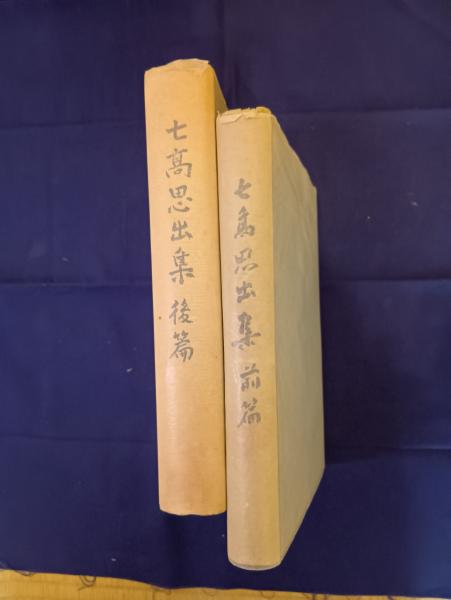 七高思出集 後篇
七高思出集 前篇